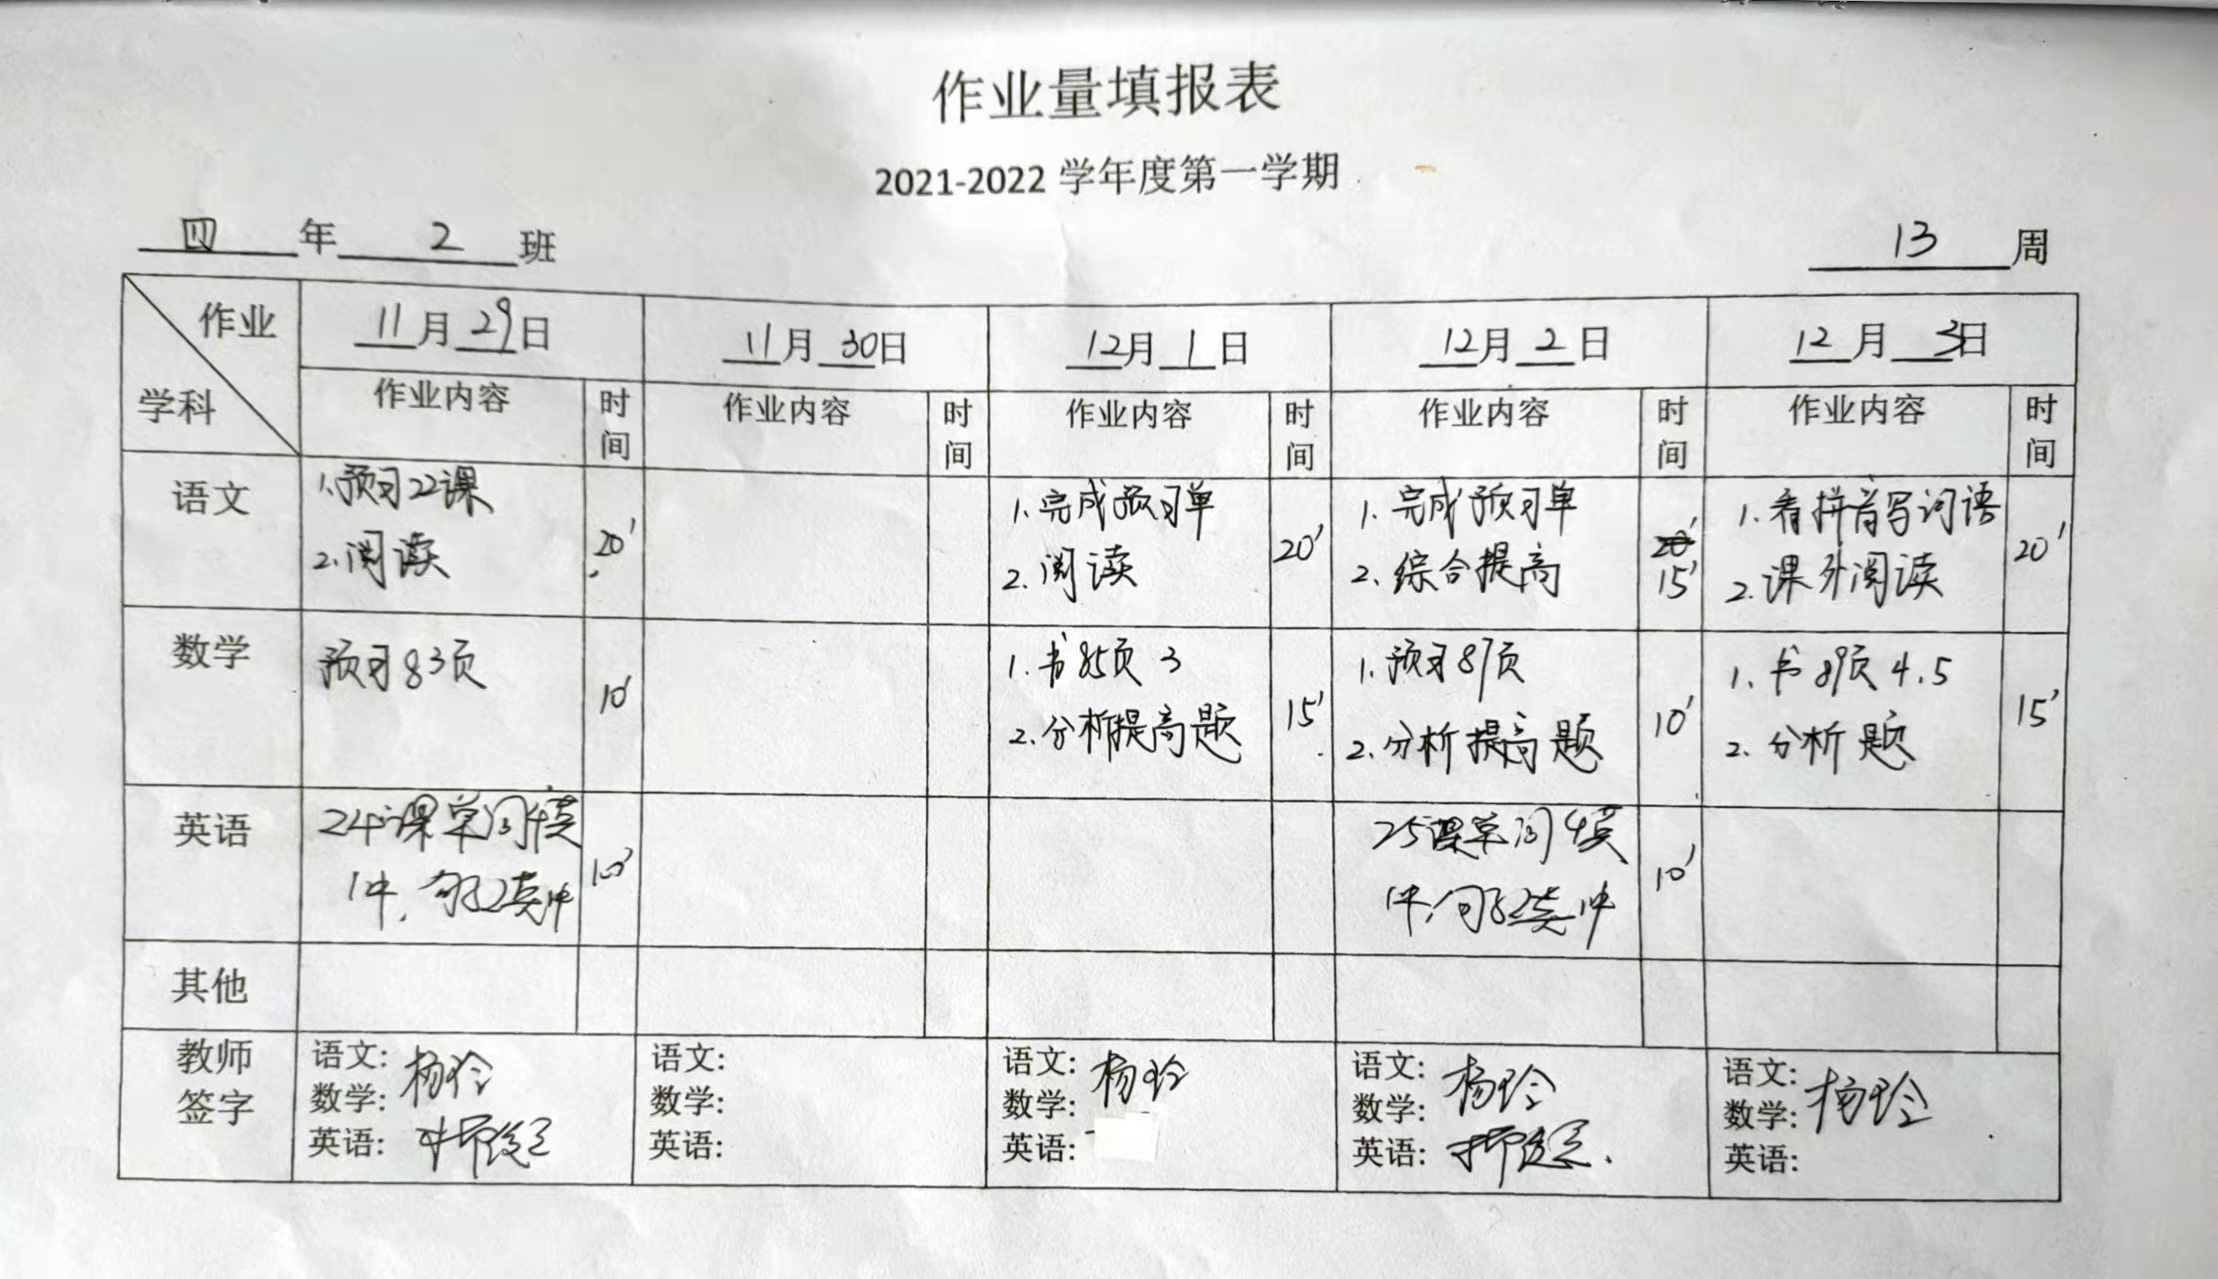 作业量填报表
2021-2022 学年度第一学期
四 年 2 班
13 周
作业
学科
11 月 29 日
11 月 30 日
12 月 1 日
12 月 2 日
12 月 3 日
作业内容 时间
作业内容 时间
作业内容 时间
作业内容 时间
作业内容 时间
语文
1.预习22课
2.阅读
20'
1.完成预习单
2.阅读
20'
1.完成预习单
2.综合提高
20'
15'
1.看拼音写词语
2.课外阅读
20'
数学
预习83页
10'
1.书85页 3
2.分析提高题
15'
1.预习87页
2.分析提高题
10'
1.书89页 4.5
2.分析题
15'
英语
24课单词读
10'
25课单词读
10'
其他
教师
签字
语文: 杨玲
数学:
英语:
语文:
数学:
英语:
语文: 杨玲
数学:
英语:
语文: 杨玲
数学:
英语:
语文: 杨玲
数学:
英语: